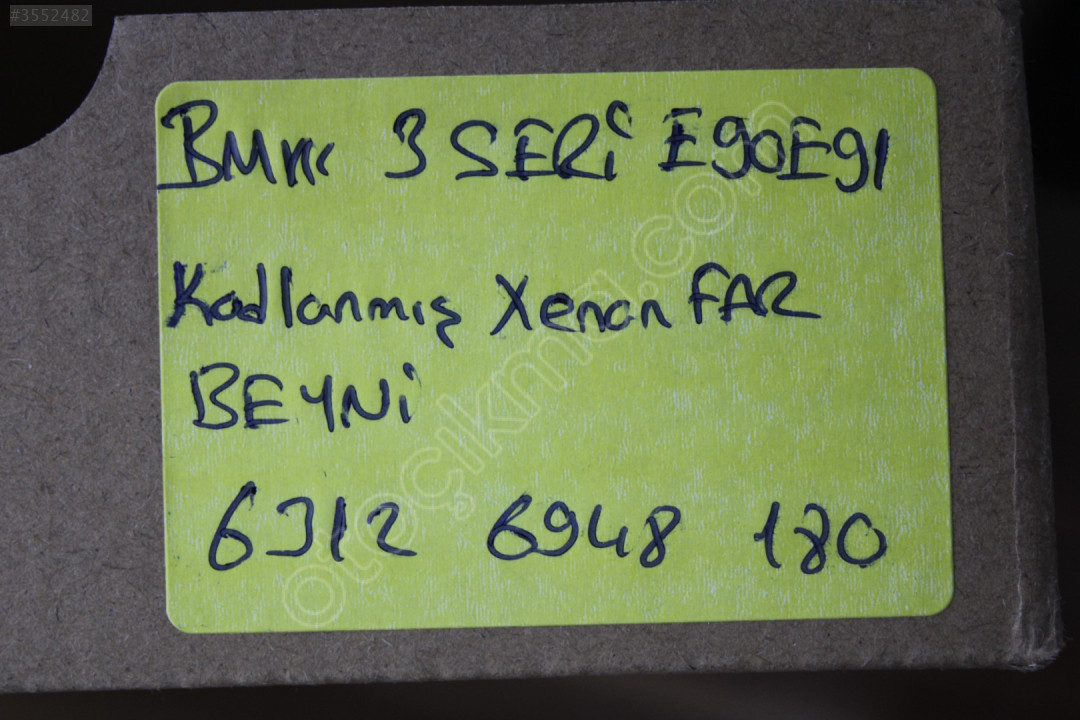 #3552482
BMW 3 SERİ E90E91
Kodlanmış Xenon FAR
BEYNİ
6312 6948 180
otoçıkma.com